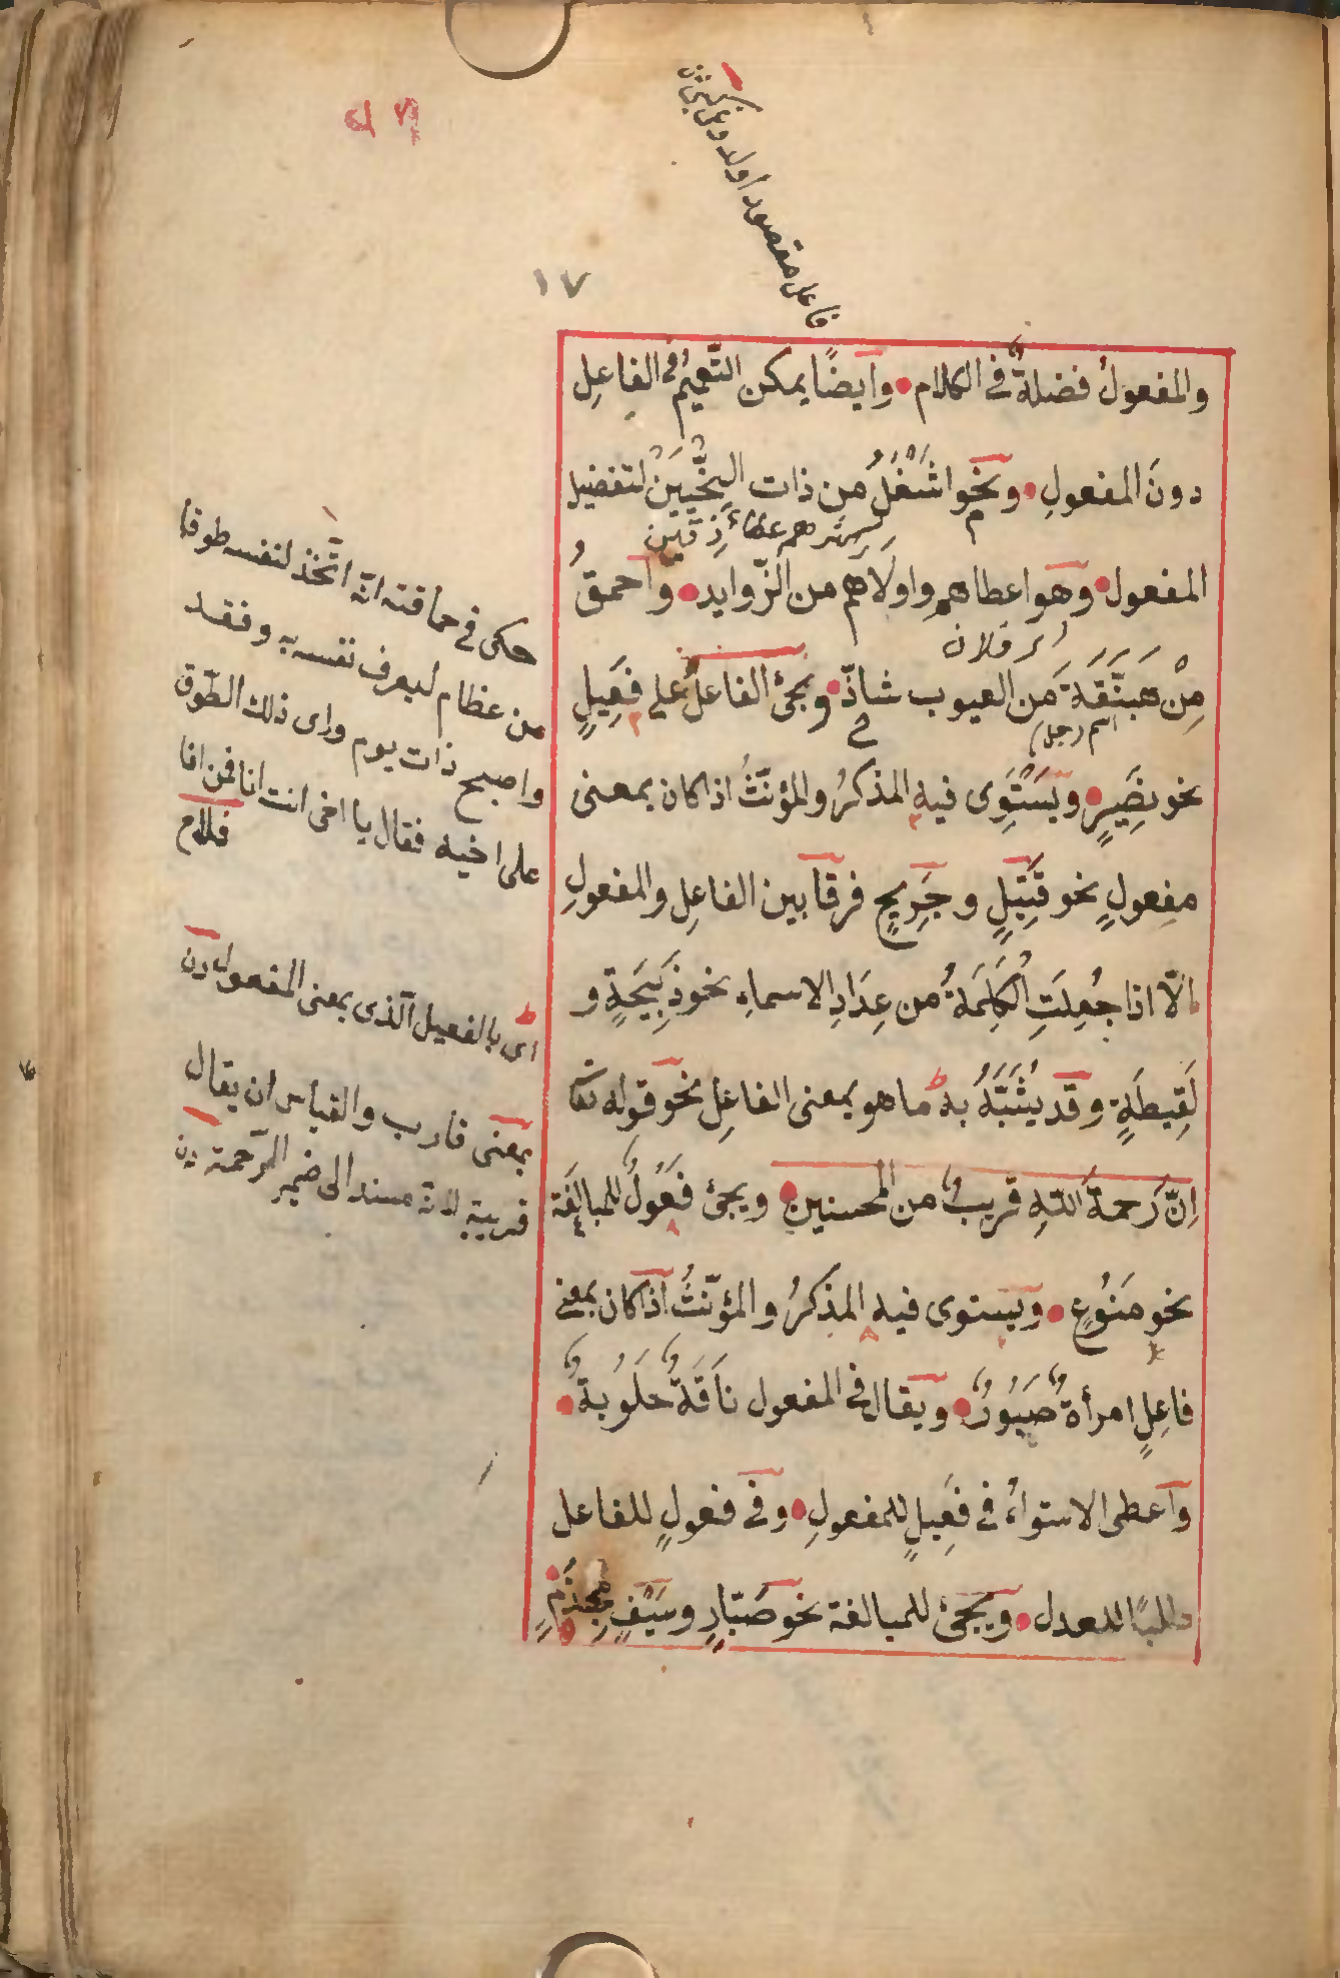 فاعل مقصود اولد وغی کبی
١٧
والمفعولُ فضلةٌ فی الكلام وايضًا يمكن التّعميمُ فی الفاعِلِ
دونَ المفعولِ ونحو اَشْغَلُ من ذات النِّحْيَيْنِ لتفضيل
المفعول وهو اعطاهم واَولَاهم من الزّوايد واَحمقُ
اى فلان
مِنْ هَبَنَّقَةَ من العيوب شاذّ ويجئ الفاعلُ على فَعِيلٍ
اسم رجل
نحو نَصِيرٍ ويَسْتَوِى فيه المذكرُ والمؤنّثُ اذا كان بمعنى
مفعولٍ نحو قَتِيلٍ و جَرِيحٍ فرقا بين الفاعِلِ والمفعولِ
الّا اذا جُعِلَتِ الْكَلِمَةُ من عِدَادِ الاسماءِ نحو ذَبِيحَةٍ و
لَقِيطَةٍ وقد يُشَبَّهُ به ما هو بمعنى الفاعِلِ نحو قوله تعا
اِنَّ رَحمةَ اللّٰهِ قريبٌ من المحسنين ويجئ فَعُولٌ للمبالَغَة
نحو مَنُوعٍ ويستوى فيه المذكرُ والمؤنّثُ اذا كان بمعنى
فاعِلٍ امرأةٌ صَبُورٌ ويقال فی المفعول نَاقَةٌ حَلُوبةٌ
واَعطى الاستواءُ فی فَعِيلٍ للمفعولِ وفی فعولٍ للفاعل
طلبًا للعدل ويجئ للمبالغة نحو صَبّارٍ وسَيْفٍ مِجْذَمٍ
حكى فی حماقته انّه اتّخذ لنفسه طوقا
من عظام ليعرف نفسه به وفقد
واصبح ذات يوم وراى ذلك الطّوق
على اخيه فقال يا اخى انت انا فمن انا
فلاح
اى بالفعيل الّذى بمعنى المفعول
بمعنى قارب والقياس ان يقال
قريبة لانّه مسند الى ضمير الرّحمة